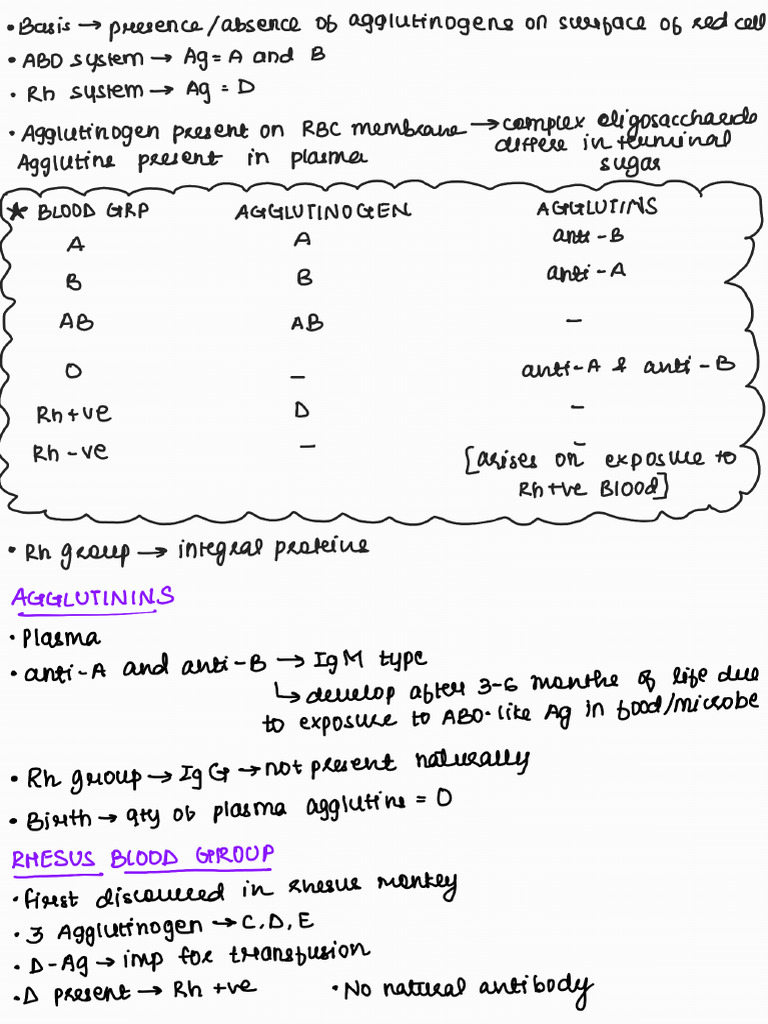 • Basis → presence/absence of agglutinogens on surface of red cell
• ABO system → Ag = A and B
• Rh system → Ag = D
• Agglutinogen present on RBC membrane → complex oligosaccharide
differ in terminal
sugar
Agglutins present in plasma
★ BLOOD GRP AGGLUTINOGEN AGGLUTINS
A A anti-B
B B anti-A
AB AB —
O — anti-A & anti-B
Rh+ve D —
Rh-ve — —
[arises on exposure to
Rh+ve Blood]
• Rh group → integral proteins
AGGLUTININS
• Plasma
• anti-A and anti-B → IgM type
↳ develop after 3-6 months of life due
to exposure to ABO-like Ag in food/microbe
• Rh group → IgG → not present naturally
• Birth → qty of plasma agglutins = 0
RHESUS BLOOD GROUP
• first discovered in rhesus monkey
• 3 Agglutinogen → C, D, E
• D-Ag → imp for transfusion
• D present → Rh +ve • No natural antibody